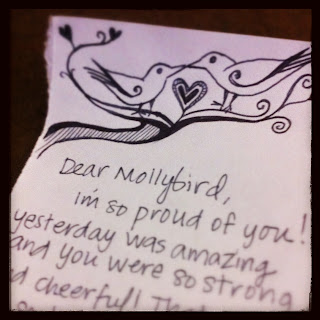 Dear Mollybird,
i'm so proud of you!
yesterday was amazing
and you were so strong
d cheerful!